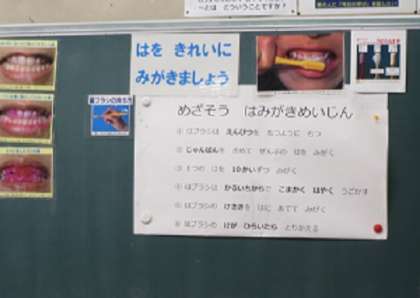 ～とは どういうことですか？
はを きれいに
みがきましょう
歯ブラシの持ち方
めざそう はみがきめいじん
① はブラシは えんぴつを もつように もつ
② じゅんばんを きめて ぜんぶの はを みがく
③ 1つの はを 10かいずつ みがく
④ はブラシは かるいちからで こまかく はやく うごかす
⑤ はブラシの けさきを はに あてて みがく
⑥ はブラシの けが ひらいたら とりかえる